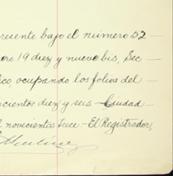 resente bajo el número 52
ero 19 diez y nueve bis, Sec
ico ocupando los folios del
cientos diez y seis — Ciudad
l novecientos trece — El Registrador,